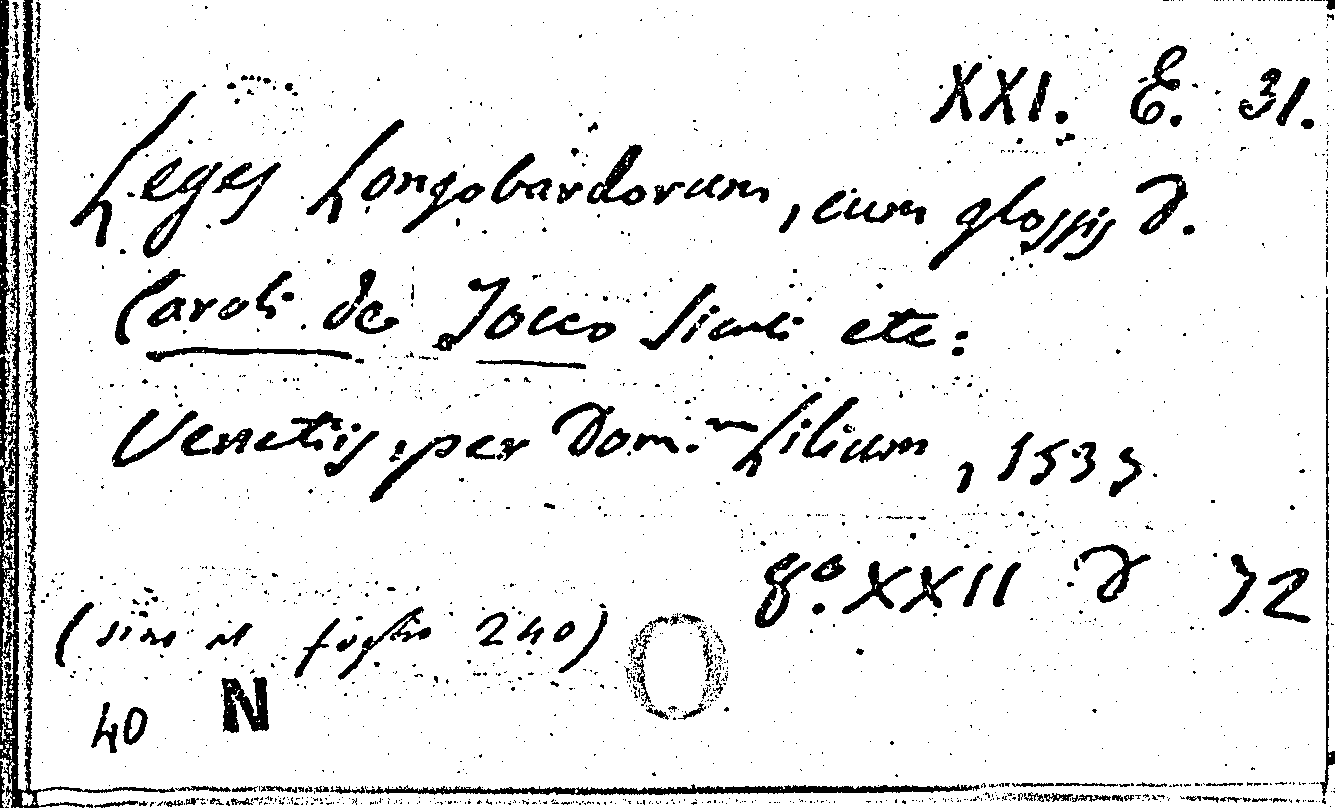 XXI. E. 31.
Leges Longobardorum, cum glossis D.
Caroli de Tocco Siculi etc:
Venetiis, per Dom.m Lilium, 1537
8°. XXII D 72
(sino al foglio 240)
40 N